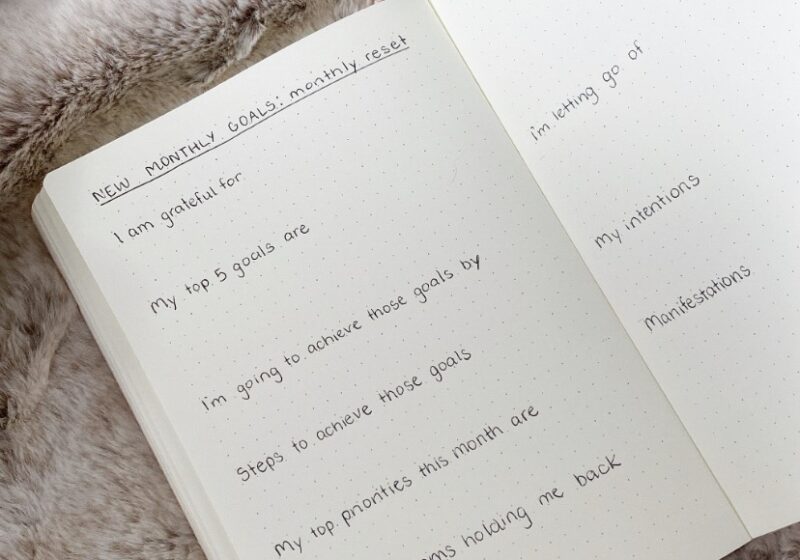 NEW MONTHLY GOALS: monthly reset
I am grateful for
My top 5 goals are
I'm going to achieve those goals by
Steps to achieve those goals
My top priorities this month are
holding me back
i'm letting go of
My intentions
Manifestations